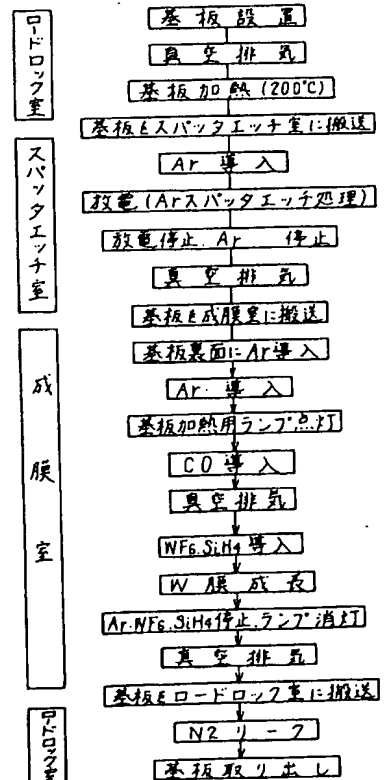 ロードロック室
基板設置
真空排気
基板加熱(200℃)
基板をスパッタエッチ室に搬送
スパッタエッチ室
Ar導入
放電(Arスパッタエッチ処理)
放電停止.Ar 停止
真空排気
基板を成膜室に搬送
成膜室
基板裏面にAr導入
Ar.導入
基板加熱用ランプ点灯
CO導入
真空排気
WF6.SiH4導入
W膜成長
Ar.WF6.SiH4停止.ランプ消灯
真空排気
基板をロードロック室に搬送
ロードロック室
N2リーク
基板取り出し